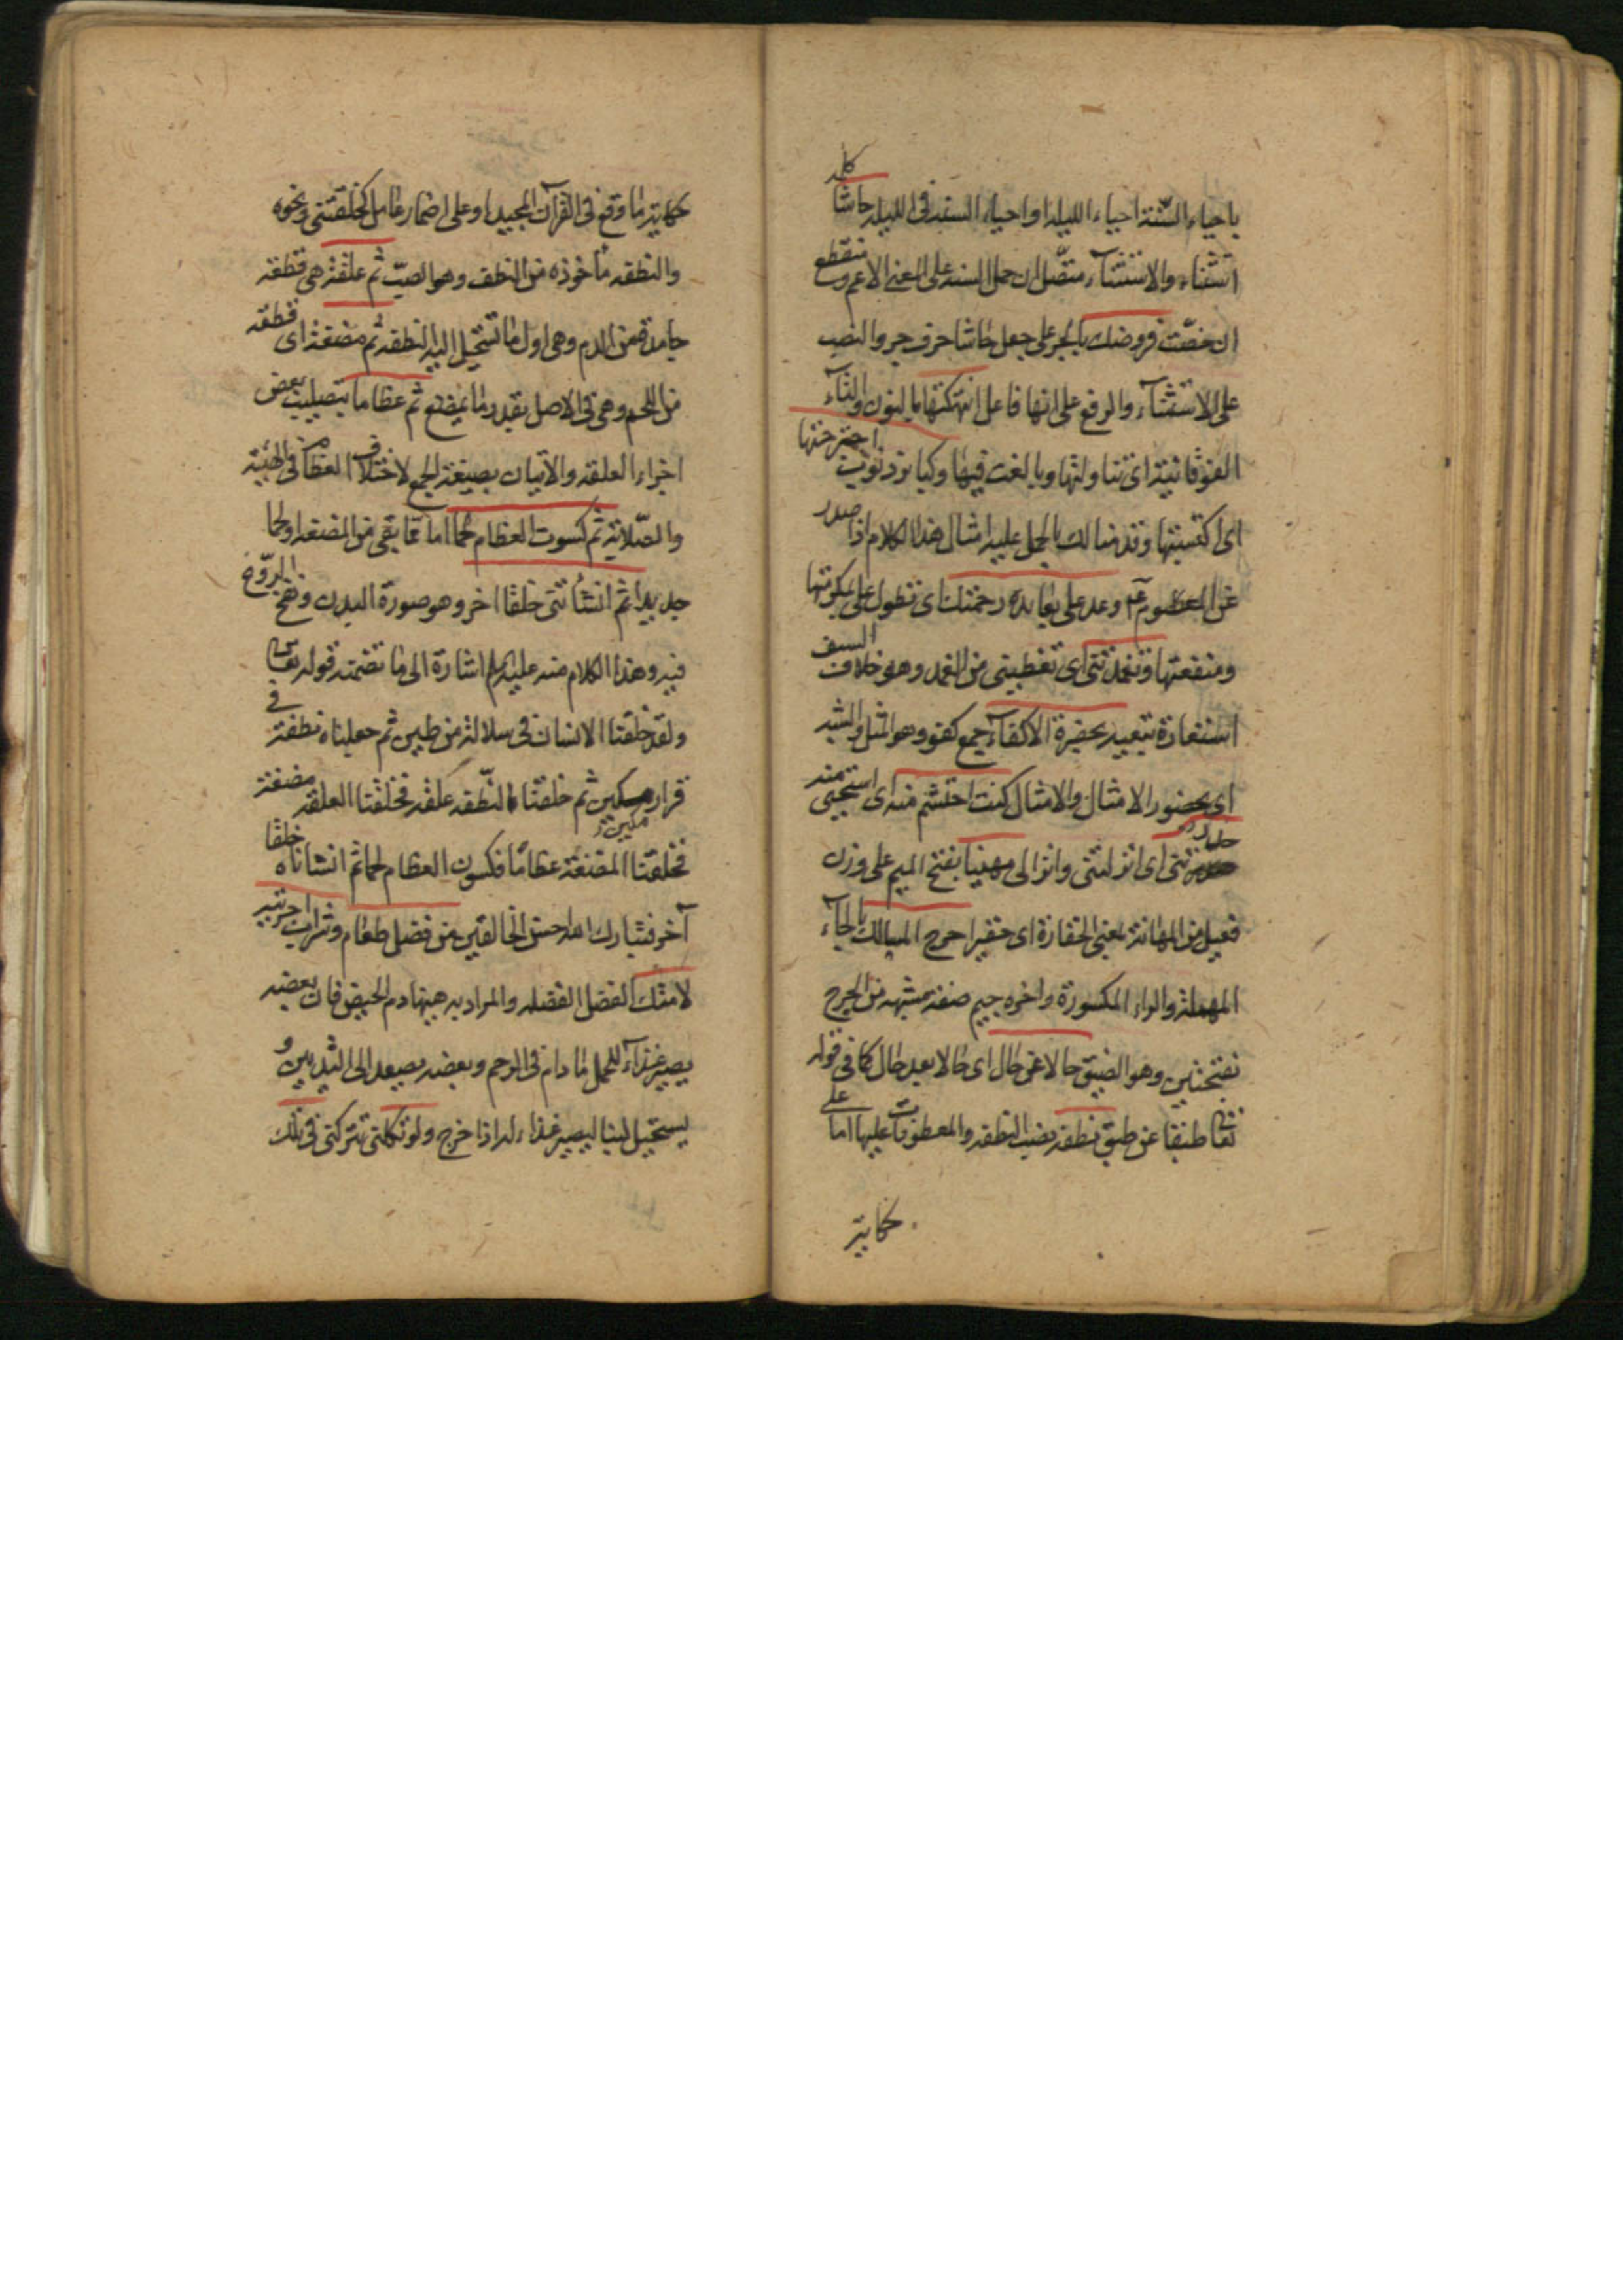 باحياء السنة احياء الليله او احياء السنه فى الليله حاشا كلمه
استثناء والاستثناء متصل ان حمل السنه على المعنى الاعم ومنقطع
ان خصت فروضك بالجر على جعل حاشا حرف جر والنصب
على الاستثناء والرفع على انها فاعل انتهكتها بالنون والتاء
الفوقانية اى تناولتها وبالغت فيها وكبائر ذنوب اجترحتها
اى اكتسبتها وقد منا لك بالحمل عليه امثال هذا الكلام اذا صدر
عن المعصوم ع م وعد على بعائدة رحمتك اى تطول على بمكرمتها
ومنفعتها وتغمدتنى اى تغطيتى من الغمد وهو غلاف السيف
استعارة تبعيه بحضرة الاكفاء جمع كفو وهو المثل والشبه
اى بحضور الامثال والامثال كنت احتشم منه اى استحيى منه
حدرتنى اى انزلتنى وانزالى مهينا بفتح الميم على وزن
فعيل من المهانة بمعنى الحقارة اى حقيرا حرج المسالك بالحاء
المهملة والراء المكسورة واخره جيم صفة مشبهه من الحرج
بفتحتين وهو الضيق حالا عن حال اى حالا بعد حال كما فى قوله
تعالى طبقا عن طبق نطفه نصب النطفه والمعطوفات عليها اما على
حكاية
حكاية ما وقع فى القرآن المجيد او على اضمار عامل كخلقتنى ونحوه
والنطفه ماخوذه من النطف وهو الصب ثم علقة هى قطعه
جامدة من الدم وهى اول ما تستحيل اليه النطفه ثم مضغة اى قطعه
من اللحم وهى فى الاصل بقدر ما يمضغ ثم عظاما بتصليب بعض
اجزاء العلقه والاتيان بصيغة الجمع لاختلاف العظام فى الهيئة
والصلابة ثم كسوت العظام لحما اما مما بقى من المضغه او لحما
جديدا ثم انشأتنى خلقا اخر وهو صورة البدن ونفخ الروح
فيه وهذا الكلام منه عليه السلام اشارة الى ما تضمنه قوله تعالى
ولقد خلقنا الانسان فى سلالة من طين ثم جعلناه نطفة فى
قرار مكين ثم خلقنا النطفه علقه فخلقنا العلقه مضغة
مكين
فخلقنا المضغة عظاما فكسون العظام لحما ثم انشاناه خلقا
آخر فتبارك الله احسن الخالقين من فضل طعام وشراب اجريته
لامتك الفضل الفضله والمراد به هيهنا دم الحيض فان بعضه
يصير غذاء للحمل ما دام فى الرحم وبعضه يصعد الى الثديين و
يستحيل لبنا ليصير غذاء له اذا خرج ولو تكلنى تتركنى فى تلك